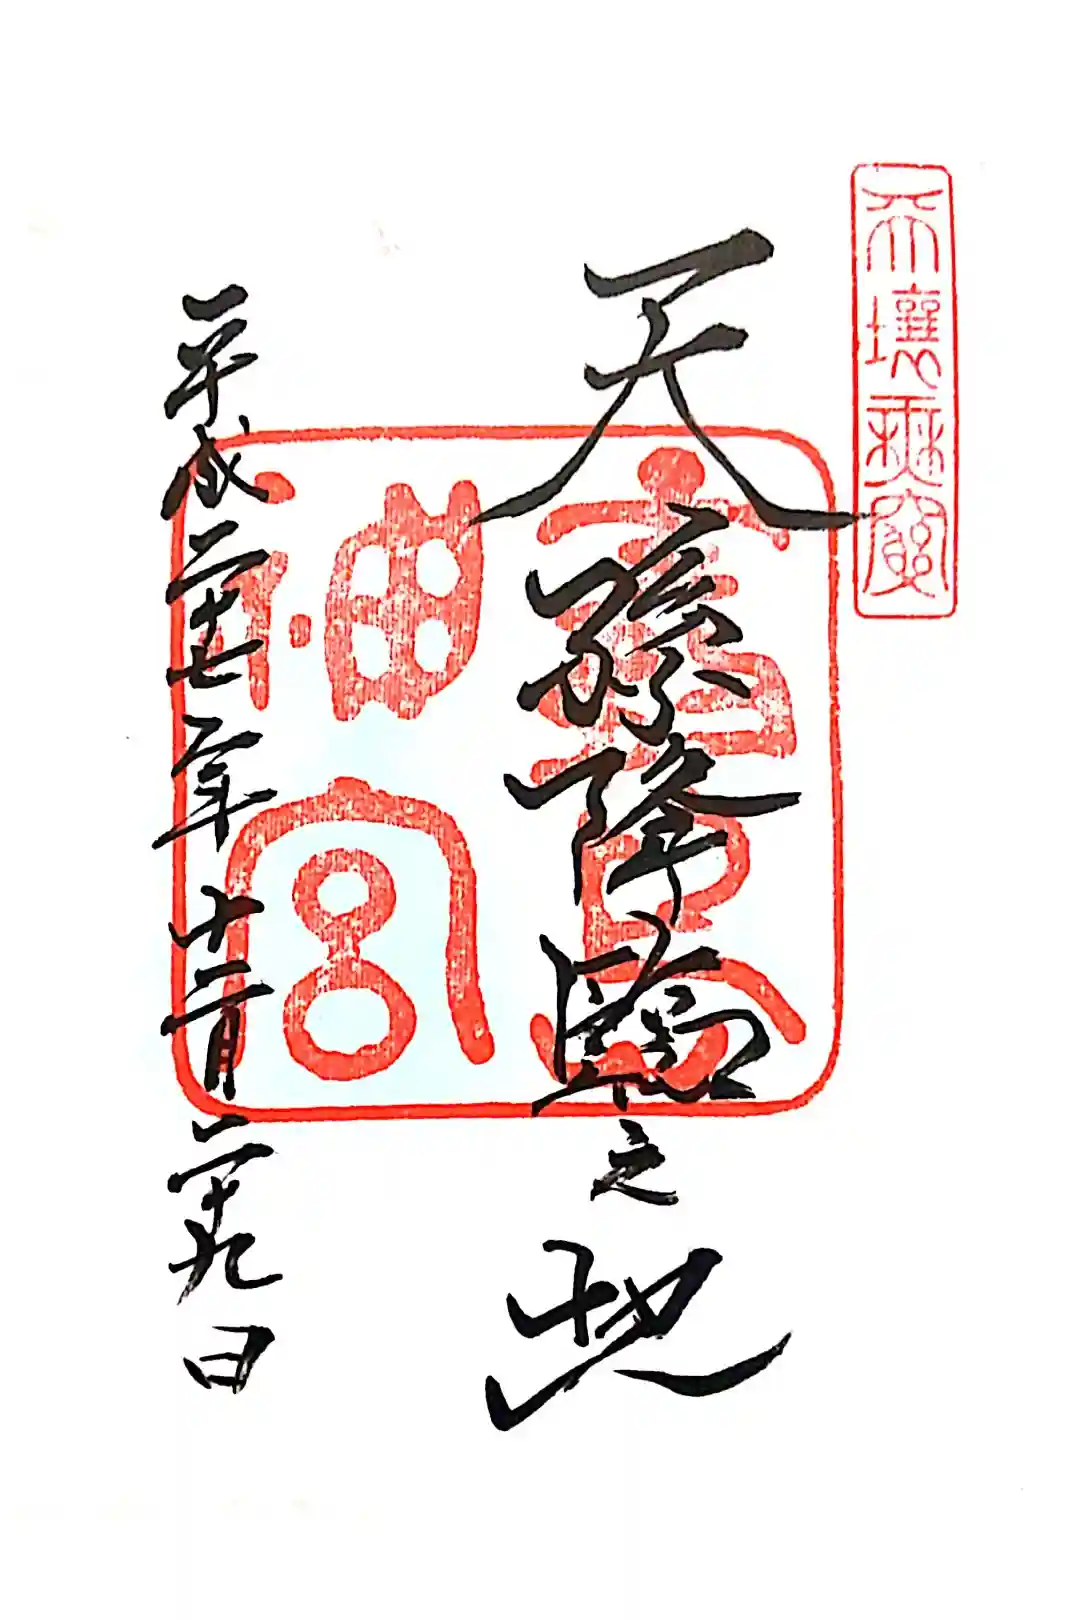 天壤無窮
天孫降臨之地
神宮
平成二十七年十二月二十九日